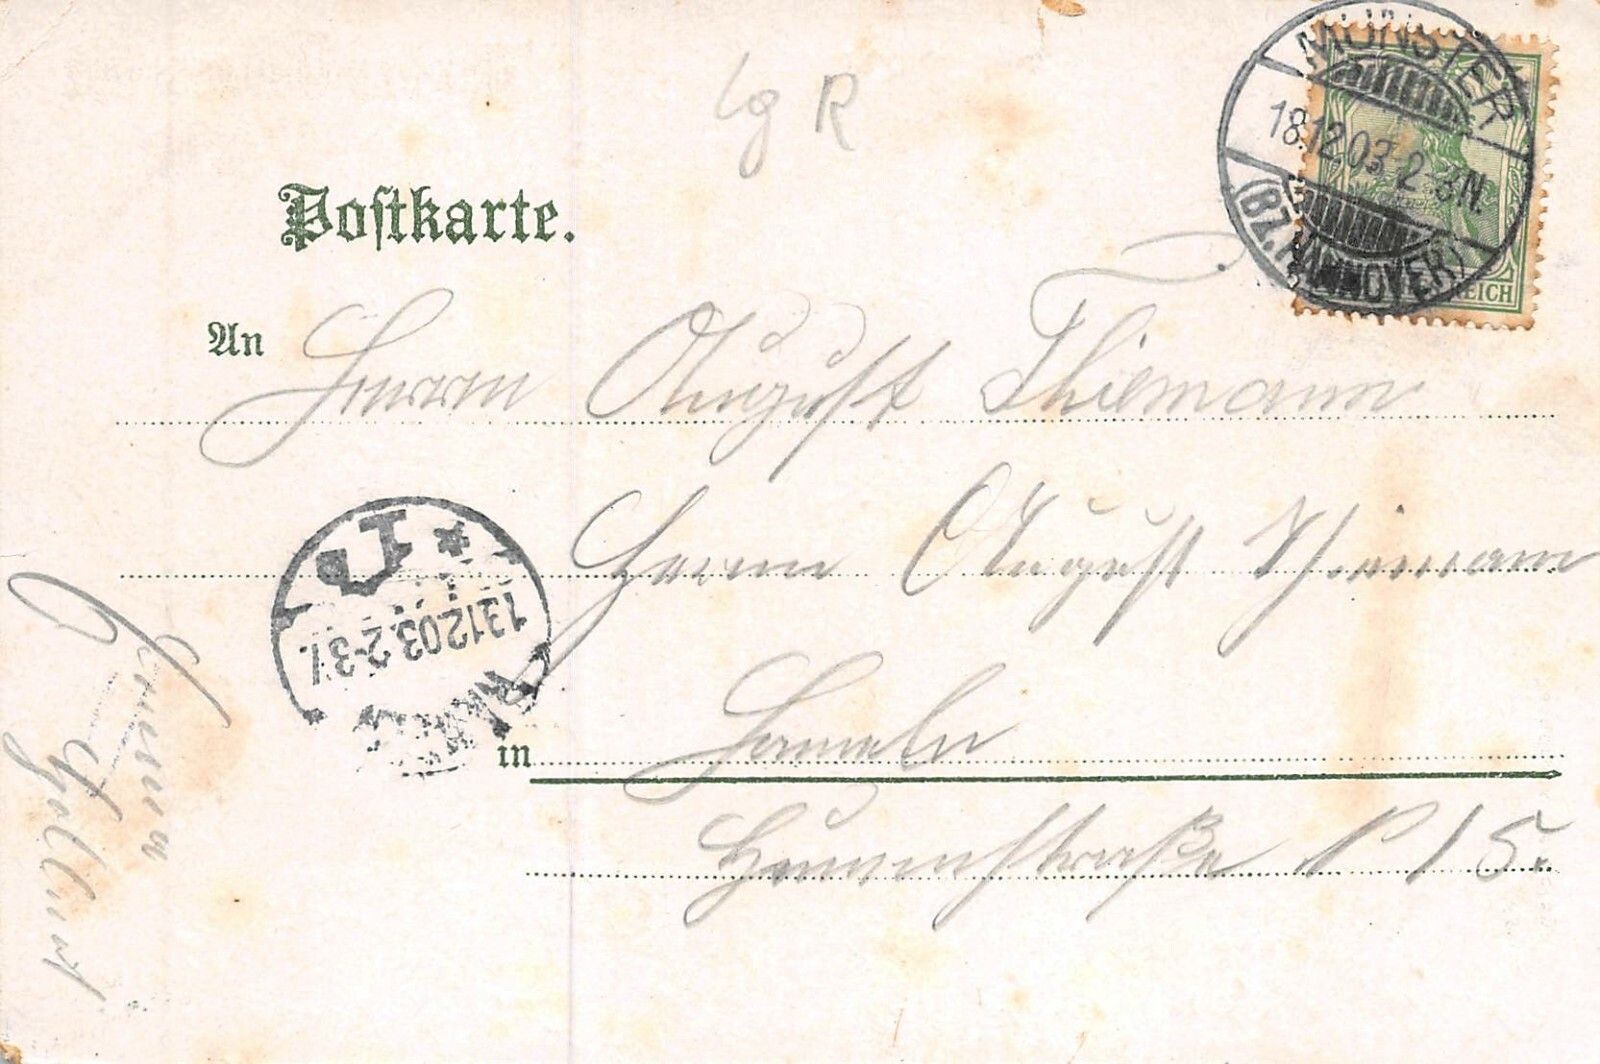 lg R
MÜNSTER
18.12.03. 2-3N.
(BZ. HANNOVER)
REICH
Postkarte.
An Herrn August Thiemann
Herrn August Thiemann
13.12.03. 2-3
in Hameln
15.